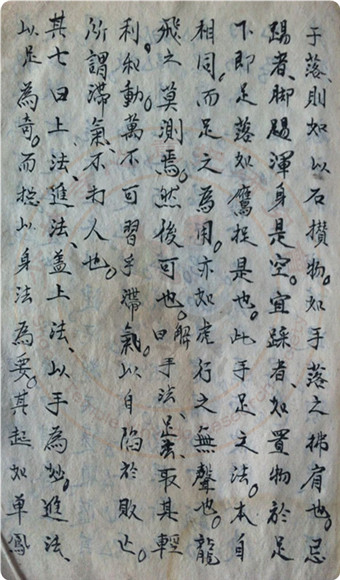 于落、則如以石攢物。如手落之拂肩也。忌
踢者、脚踢渾身是空。宜踩者、如置物於足
下、即足落如鷹捉是也。此手足之法、本自
相同、而足之為用、亦如虎行之無聲也。龍
飛之莫測焉。然後可也。解曰、手法足法、取其輕
利、和動、萬不可習乎滯氣、以自陷於敗亡。
所謂滯氣、不打人也。
其七曰上法、進法、蓋上法、以手為妙。進法、
以足為奇。而總以身法為要。其起如單鳳